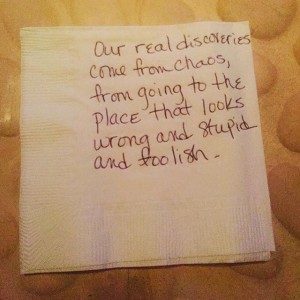 Our real discoveries
come from chaos,
from going to the
place that looks
wrong and stupid
and foolish.